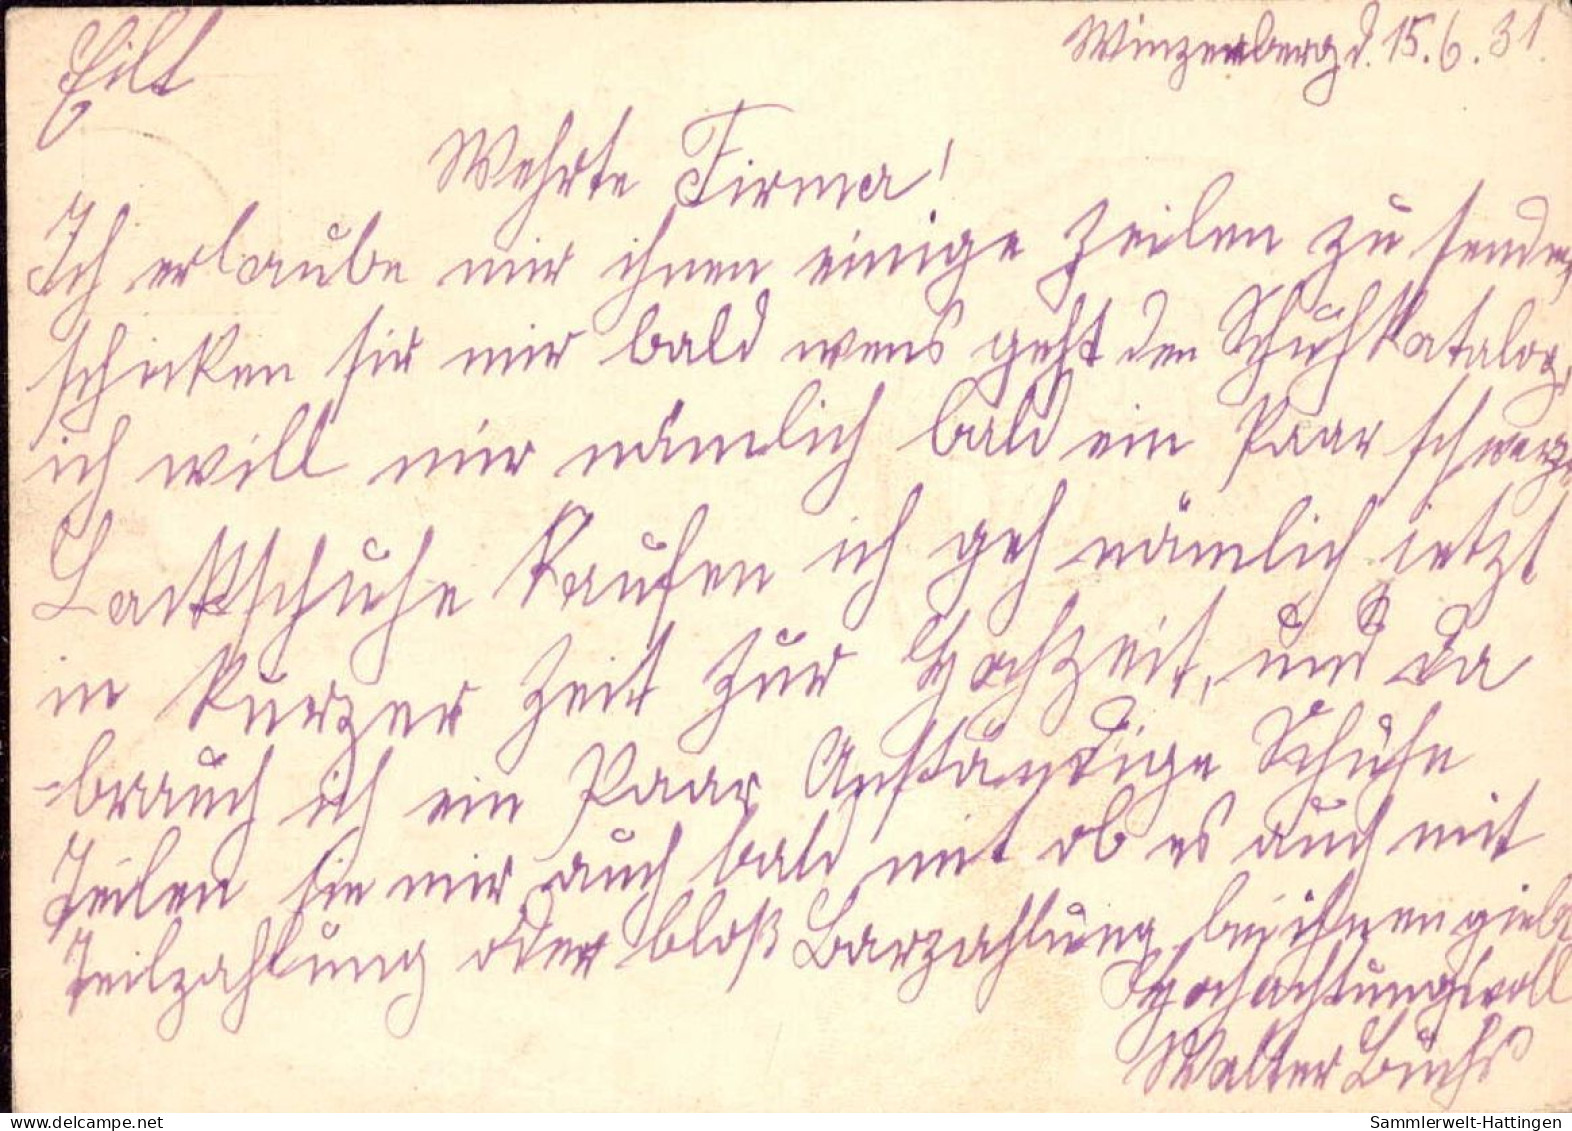 Eilt
Winzenberg d. 15.6.31.
Wehrte Firma!
Ich erlaube mir ihnen einige Zeilen zu senden,
schicken sie mir bald wens geht den Schuhkatalog,
ich will mir nämlich bald ein Paar schwarze
Lackschuhe kaufen ich geh nämlich jetzt
in kurzer Zeit zur Hochzeit, und da
brauch ich ein Paar Anständige Schuhe
Teilen sie mir auch bald mit ob es auch mit
Teilzahlung oder bloß Barzahlung bei ihnen giebt
Hochachtungsvoll
Walter Buchs
Sammlerwelt-Hattingen
delcampe.net